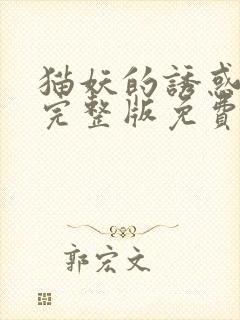 猫妖的誘惑
完整版免費
郭宏文